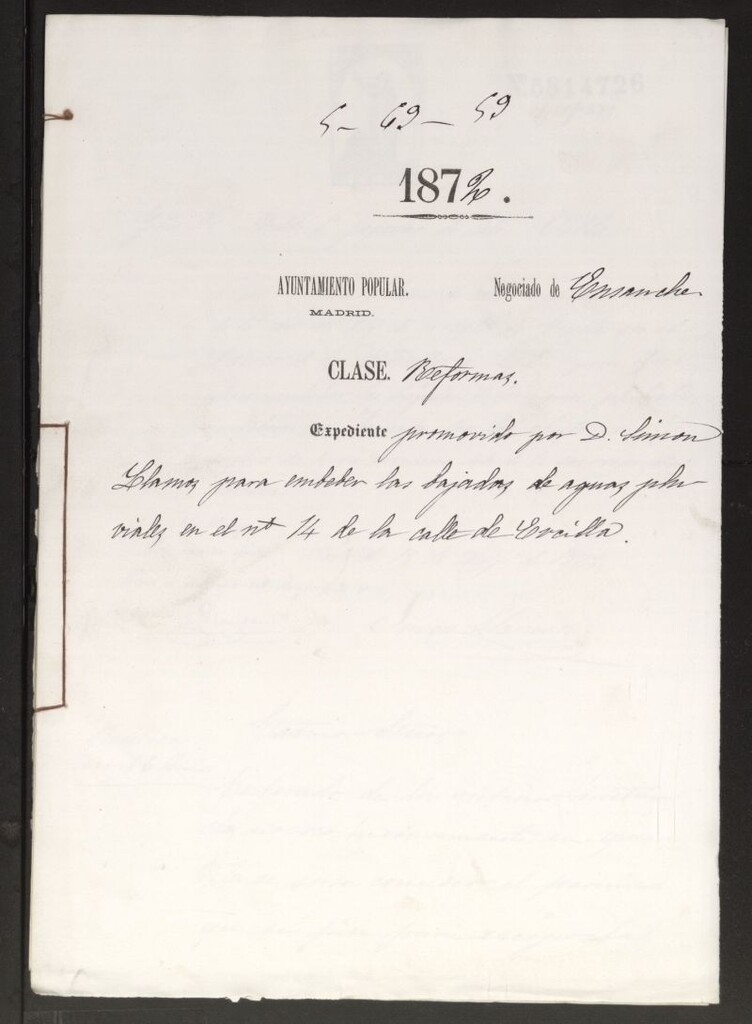 5- 69- 59
1872.
AYUNTAMIENTO POPULAR. Negociado de Ensanche
MADRID.
CLASE. Reformas.
Expediente promovido por D. Simon
Llamos para embeber las bajadas de aguas plu-
viales en el nº 14 de la calle de Ercilla.